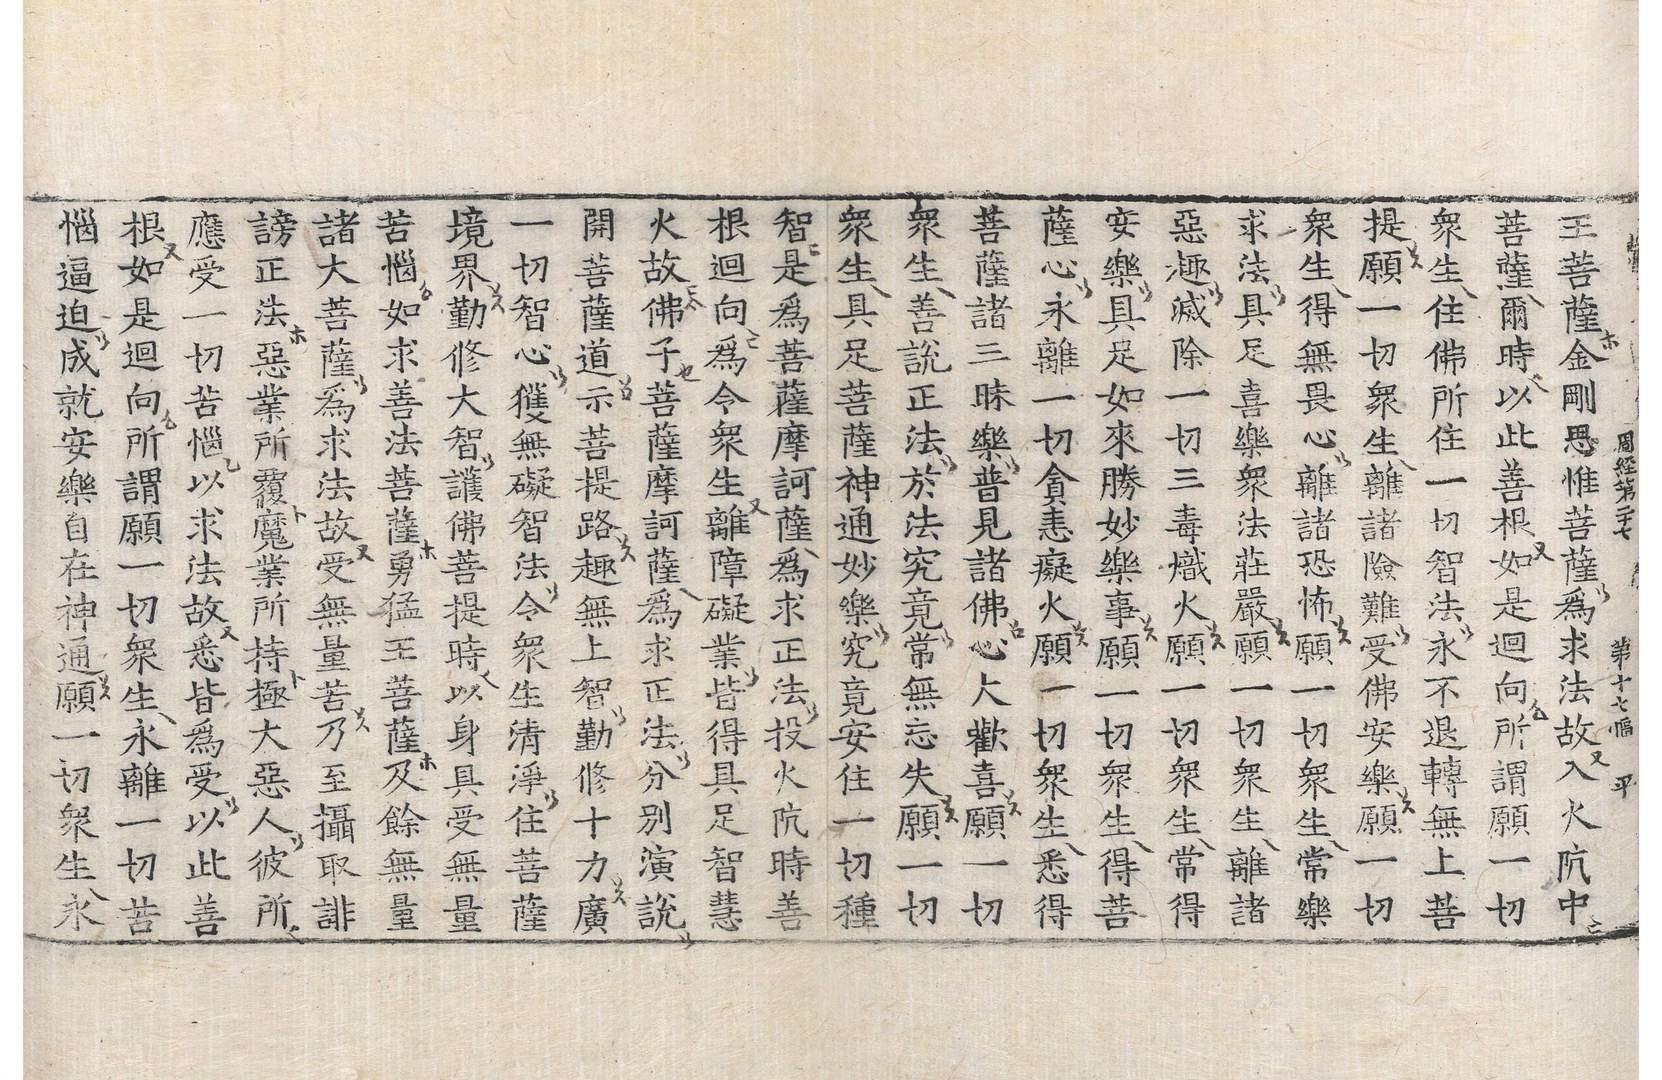 周經第二十七 第十七幅 平
王菩薩金剛思惟菩薩爲求法故入火阬中
菩薩爾時以此善根如是迴向所謂願一切
衆生住佛所住一切智法永不退轉無上菩
提願一切衆生離諸險難受佛安樂願一切
衆生得無畏心離諸恐怖願一切衆生常樂
求法具足喜樂衆法莊嚴願一切衆生離諸
惡趣滅除一切三毒熾火願一切衆生常得
安樂具足如來勝妙樂事願一切衆生得菩
薩心永離一切貪恚癡火願一切衆生悉得
菩薩諸三昧樂普見諸佛心大歡喜願一切
衆生善說正法於法究竟常無忘失願一切
衆生具足菩薩神通妙樂究竟安住一切種
智是爲菩薩摩訶薩爲求正法投火阬時善
根迴向爲令衆生離障礙業皆得具足智慧
火故佛子菩薩摩訶薩爲求正法分別演說
開菩薩道示菩提路趣無上智勤修十力廣
一切智心獲無礙智法令衆生清淨住菩薩
境界勤修大智護佛菩提時以身具受無量
苦惱如求善法菩薩勇猛王菩薩及餘無量
諸大菩薩爲求法故受無量苦乃至攝取誹
謗正法惡業所覆魔業所持極大惡人彼所
應受一切苦惱以求法故悉皆爲受以此善
根如是迴向所謂願一切衆生永離一切苦
惱逼迫成就安樂自在神通願一切衆生永